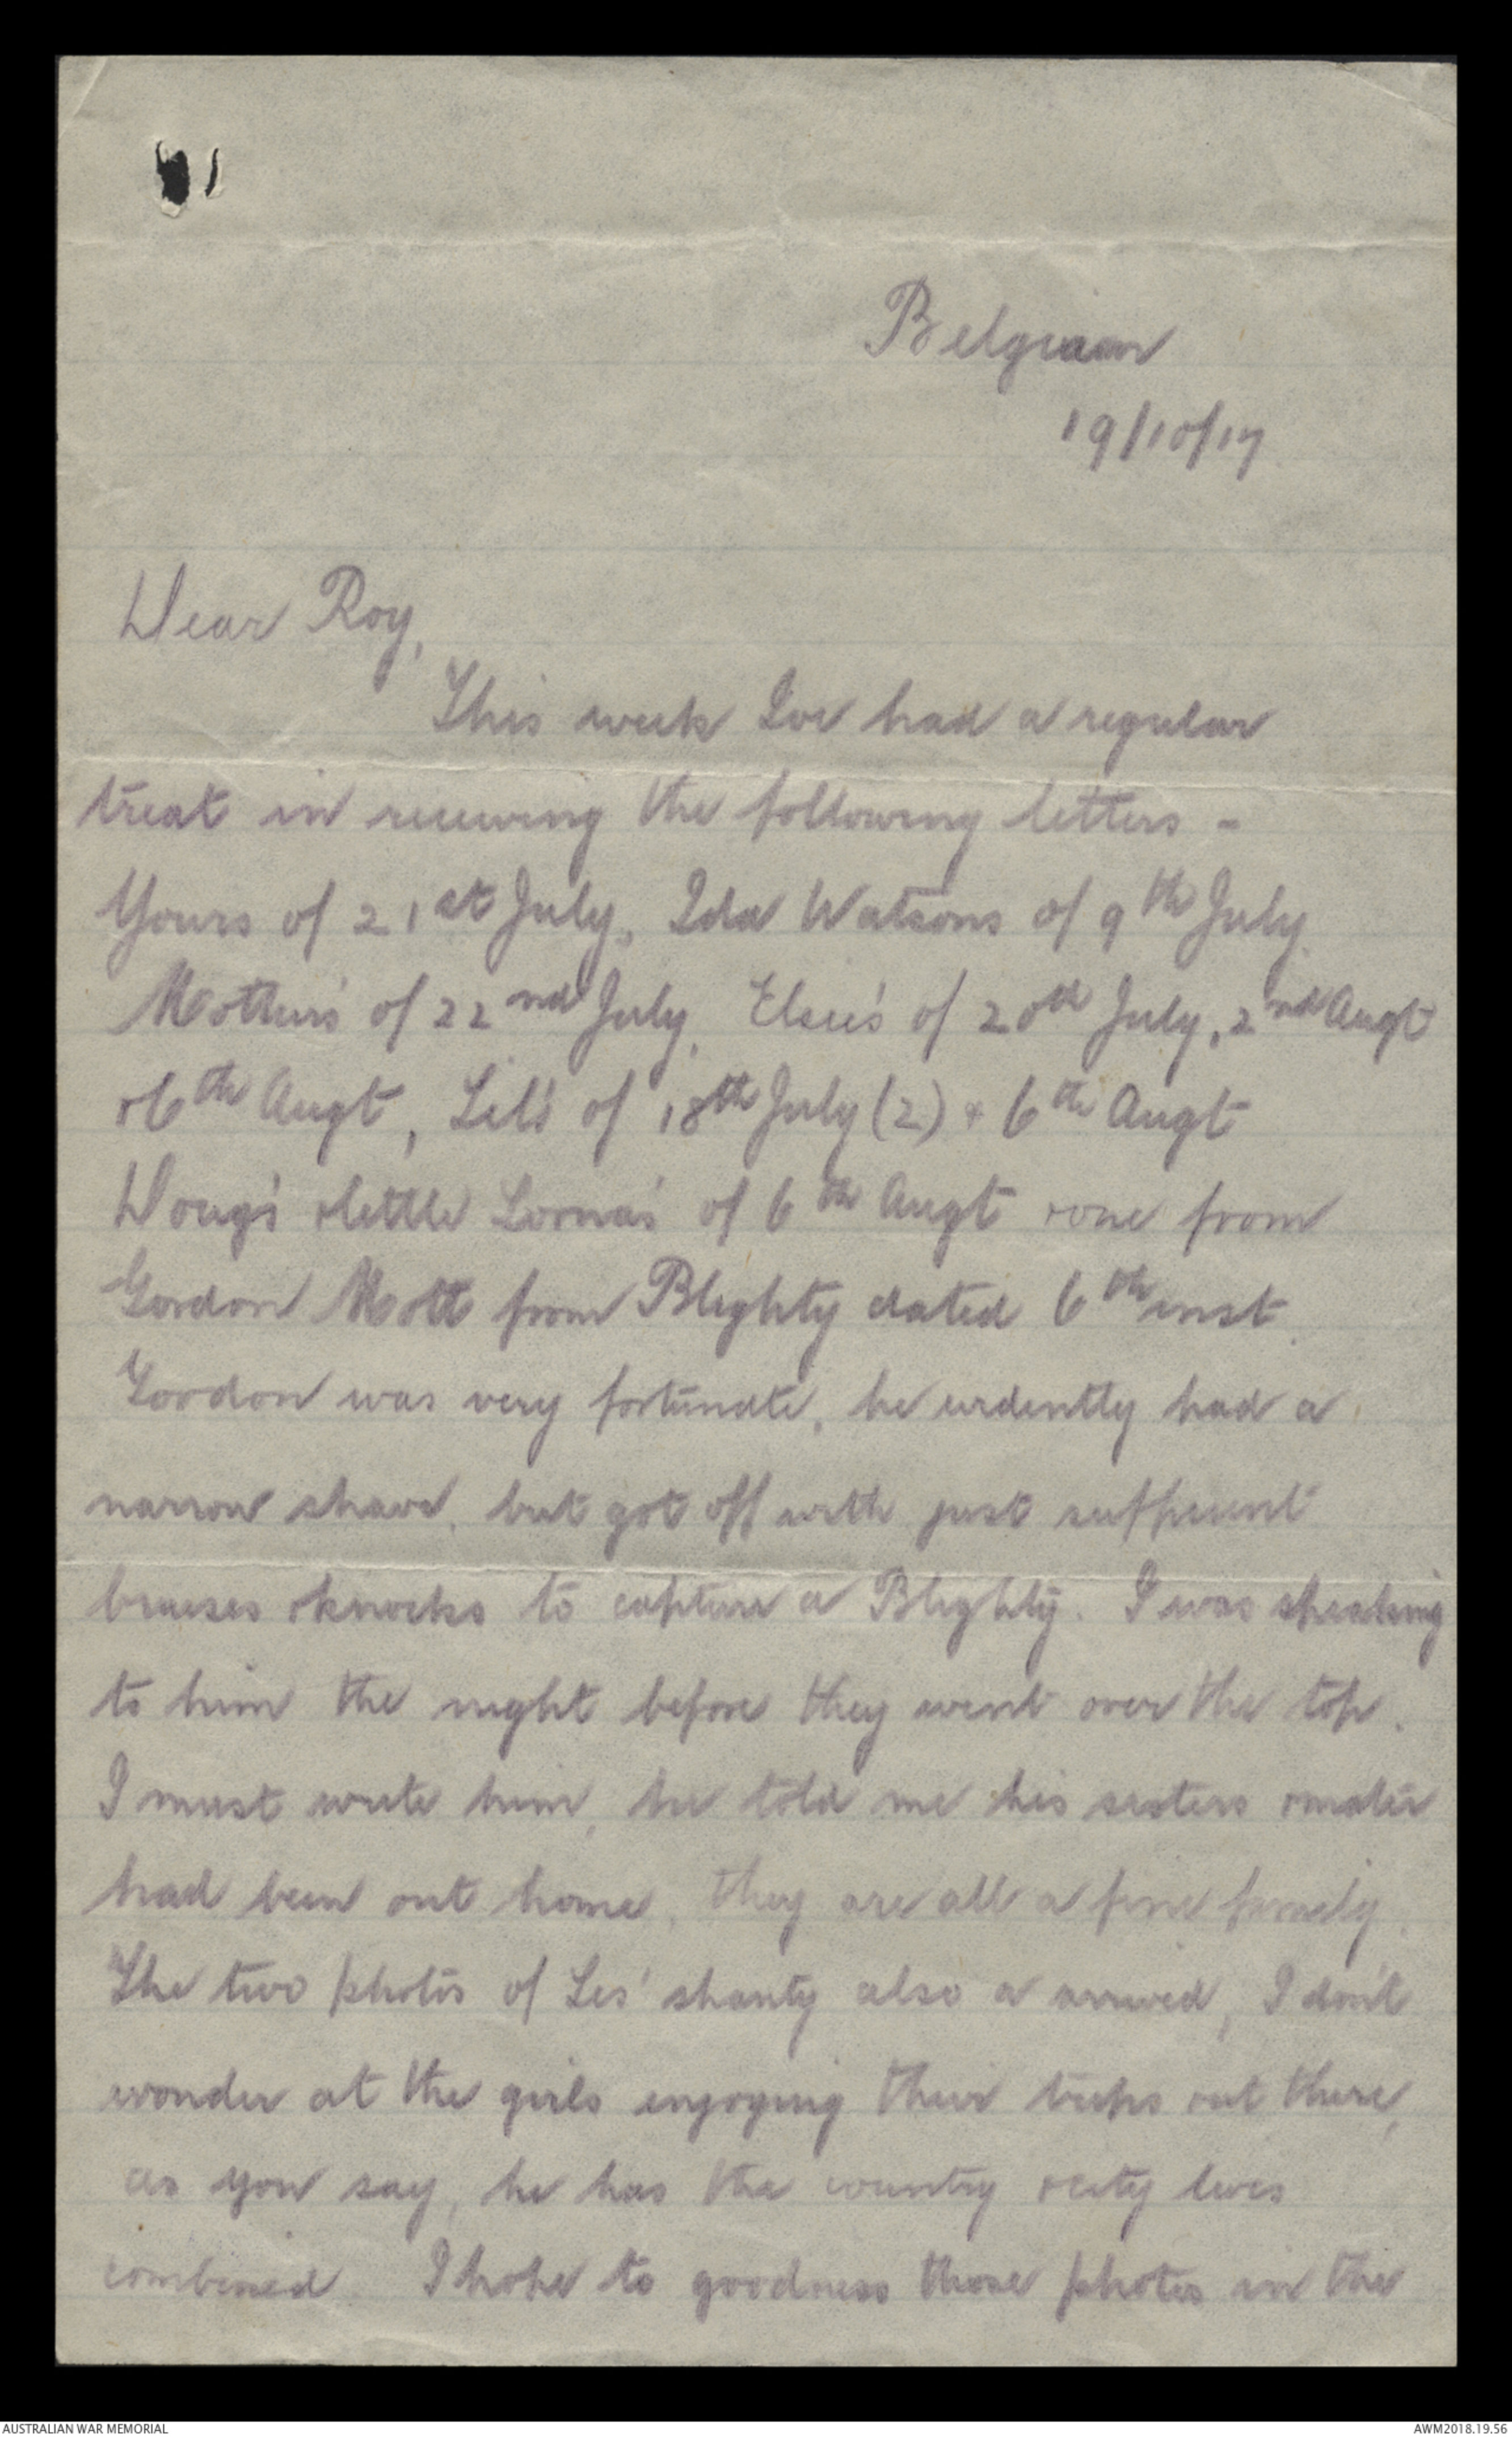 Belgium
19/10/17
Dear Roy,
This week Ive had a regular
treat in receiving the following letters -
Yours of 21st July, Ida Watsons of 9th July
Mother's of 22nd July, Elsie's of 20th July, 2nd Augt
& 6th Augt, Lil's of 18th July (2) & 6th Augt
Doug's & little Lorna's of 6th Augt & one from
Gordon Mott from Blighty dated 6th inst.
Gordon was very fortunate, he evidently had a
narrow shave, but got off with just sufficient
bruises & knocks to capture a Blighty. I was speaking
to him the night before they went over the top.
I must write him, he told me his sisters & mater
had been out home, they are all a fine family.
The two photos of Les' shanty also a arrived, I don't
wonder at the girls enjoying their trips out there,
as you say, he has the country & city lives
combined. I hope to goodness those photos in the
AUSTRALIAN WAR MEMORIAL
AWM2018.19.56